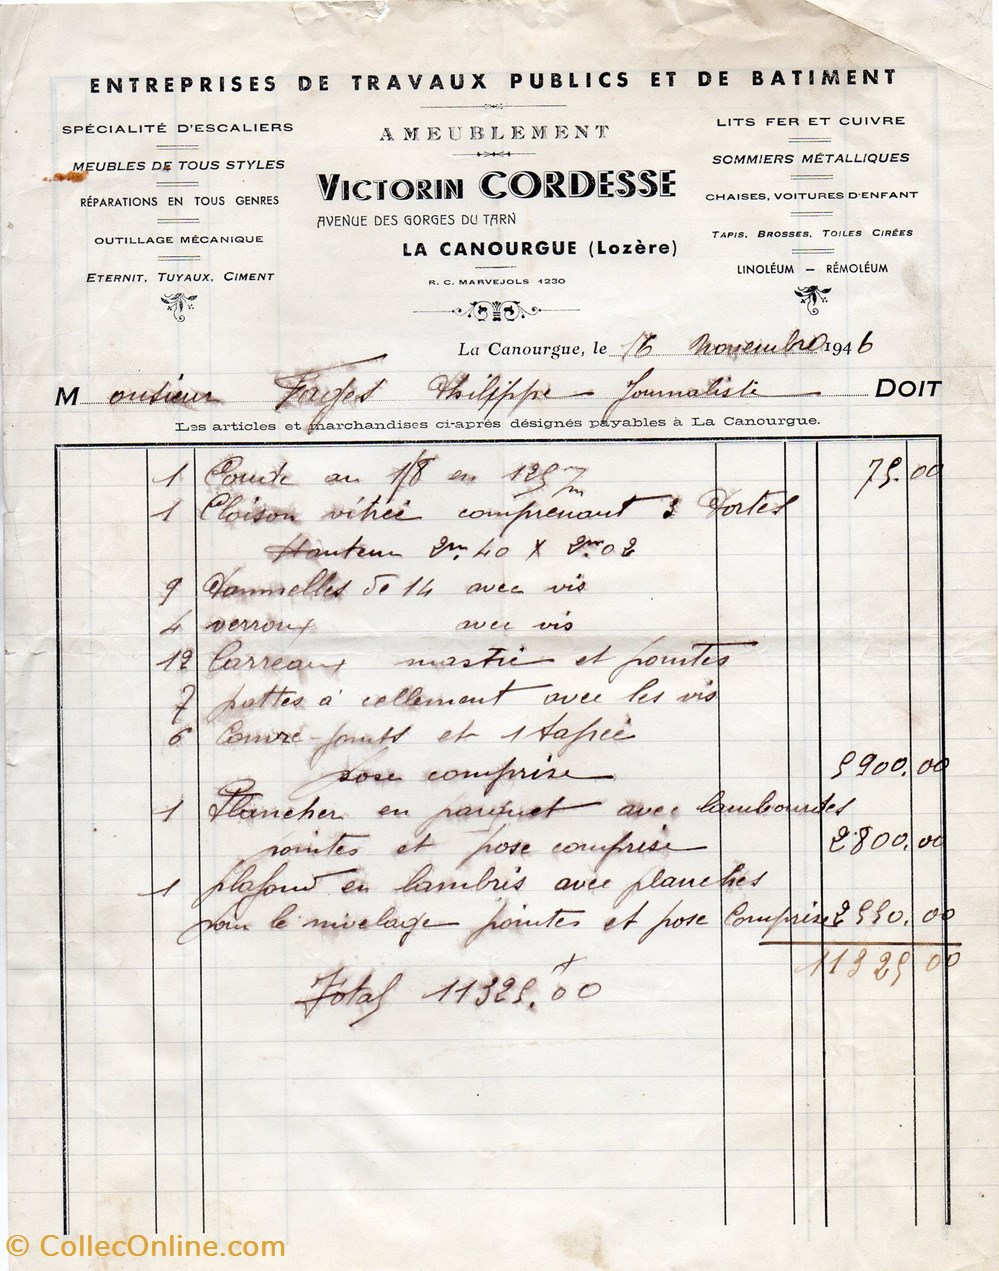 ENTREPRISES DE TRAVAUX PUBLICS ET DE BATIMENT
SPÉCIALITÉ D'ESCALIERS
MEUBLES DE TOUS STYLES
RÉPARATIONS EN TOUS GENRES
OUTILLAGE MÉCANIQUE
ETERNIT, TUYAUX, CIMENT
AMEUBLEMENT
VICTORIN CORDESSE
AVENUE DES GORGES DU TARN
LA CANOURGUE (Lozère)
R. C. MARVEJOLS 1230
LITS FER ET CUIVRE
SOMMIERS MÉTALLIQUES
CHAISES, VOITURES D'ENFANT
TAPIS, BROSSES, TOILES CIRÉES
LINOLÉUM — RÉMOLÉUM
La Canourgue, le 16 Novembre 1946
Monsieur Fages Philippe Journaliste DOIT
Les articles et marchandises ci-après désignés payables à La Canourgue.
1 au 1/8 en 75.00
1 Cloison vitrée comprenant 3 Portes
Hauteur 2m 40 X 2m 02
9 Paumelles de 14 avec vis
4 verroux avec vis
12 Carreaux mastic et pointes
7 pattes à cellement avec les vis
6 Couvre-joints et 1 tapée
pose comprise 5900.00
1 Plancher en parquet avec lambourdes
pointes et pose comprise 2800.00
1 plafond en lambris avec planches
pour le nivelage pointes et pose Comprise 2550.00
11325 00
Total 11325.00
© CollecOnline.com